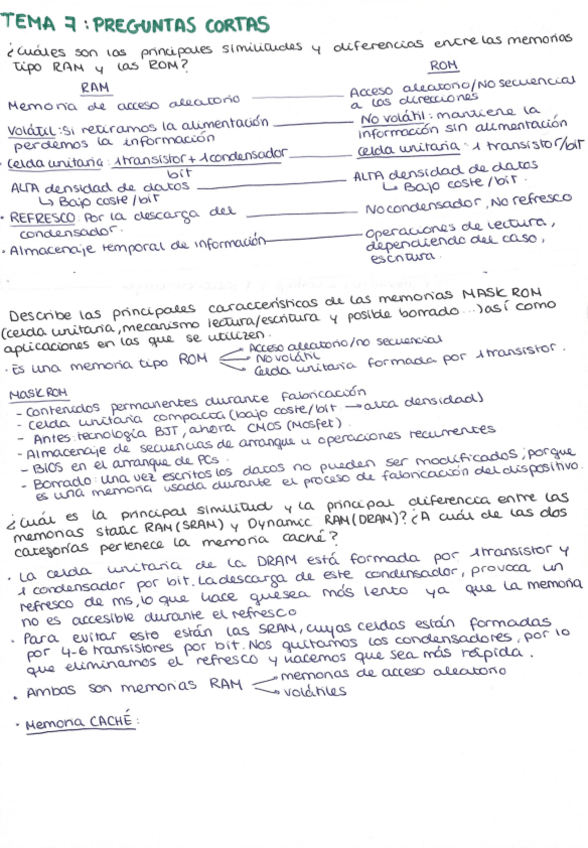 TEMA 7: PREGUNTAS CORTAS
¿Cuáles son las principales similitudes y diferencias entre las memorias
tipo RAM y las ROM?
RAM
ROM
Memoria de acceso aleatorio
Acceso aleatorio/No secuencial
a las direcciones
Volátil: Si retiramos la alimentación
perdemos la información
No volátil: mantiene la
información sin alimentación
celda unitaria: 1 transistor + 1 condensador
bit
celda unitaria: 1 transistor/bit
ALTA densidad de datos
↳ Bajo coste/bit
ALTA densidad de datos
↳ Bajo coste/bit.
· REFRESCO: Por la descarga del
condensador.
No condensador, No refresco
· Almacenaje temporal de información
operaciones de lectura,
dependiendo del caso,
escritura.
Describe las principales características de las memorias MASK ROM
(celda unitaria, mecanismo lectura/escritura y posible borrado...) así como
aplicaciones en las que se utilizen.
· Es una memoria tipo ROM
Acceso aleatorio/no secuencial
No volátil
Celda unitaria formada por 1 transistor.
MASK ROM
- Contenidos permanentes durante fabricación
- Celda unitaria compacta (bajo coste/bit → alta densidad)
- Antes: tecnología BJT, ahora CMOS (Mosfet).
- Almacenaje de secuencias de arranque u operaciones recurrentes
- BIOS en el arranque de PCs.
- Borrado: una vez escritos los datos no pueden ser modificados, porque
es una memoria usada durante el proceso de fabricación del dispositivo.
¿Cuál es la principal similitud y la principal diferencia entre las
memorias static RAM (SRAM) y Dynamic RAM (DRAM)? ¿A cuál de las dos
categorías pertenece la memoria caché?
· La celda unitaria de la DRAM está formada por 1 transistor y
1 condensador por bit. La descarga de este condensador, provoca un
refresco de ms, lo que hace que sea más lento ya que la memoria
no es accesible durante el refresco
· Para evitar esto están las SRAM, cuyas celdas están formadas
por 4-6 transistores por bit. Nos quitamos los condensadores, por lo
que eliminamos el refresco y hacemos que sea más rápida.
· Ambas son memorias RAM
memorias de acceso aleatorio
volátiles
· Memoria CACHÉ: